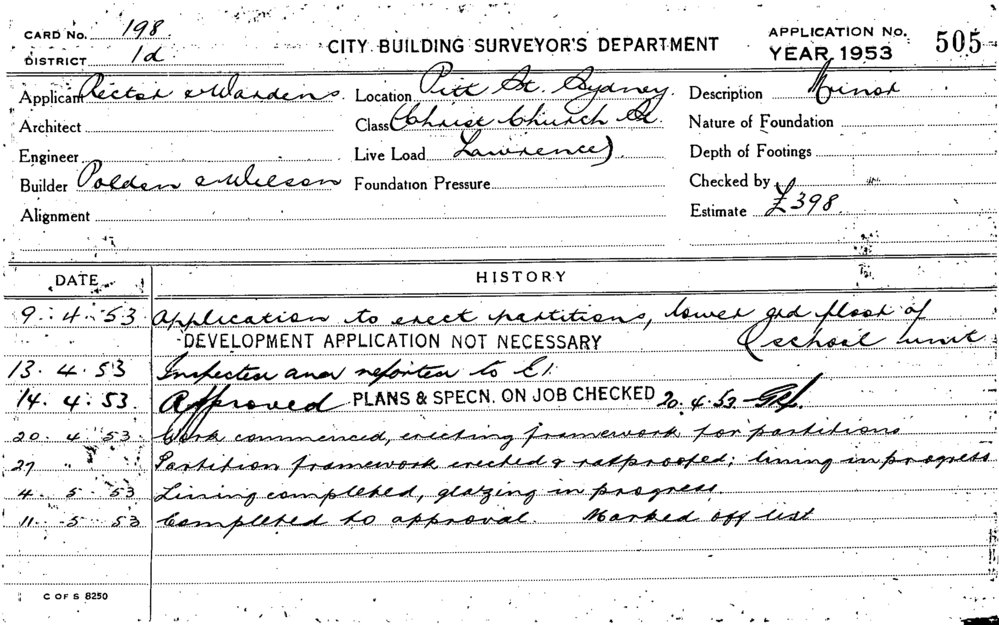 CARD No. 198
DISTRICT 1d
CITY BUILDING SURVEYOR'S DEPARTMENT
APPLICATION No. 505
YEAR 1953
Applicant Rector & Wardens Location Pitt St. Sydney Description Minor
Architect Class (Christ Church St. Nature of Foundation
Engineer Live Load Lawrence) Depth of Footings
Builder Polden & Wilson Foundation Pressure Checked by
Alignment Estimate £398
DATE HISTORY
9. 4. 53 Application to erect partitions, lower grd floor of
(school unit
DEVELOPMENT APPLICATION NOT NECESSARY
13. 4. 53 Inspected and reported to E1.
14. 4. 53. Approved PLANS & SPECN. ON JOB CHECKED 20. 4. 53
20. 4. 53 Work commenced, erecting framework for partitions
27 " " Partition framework erected & ratproofed; lining in progress
4. 5. 53 Lining completed, glazing in progress.
11. 5. 53 Completed to approval. Marked off list
C OF S 8250